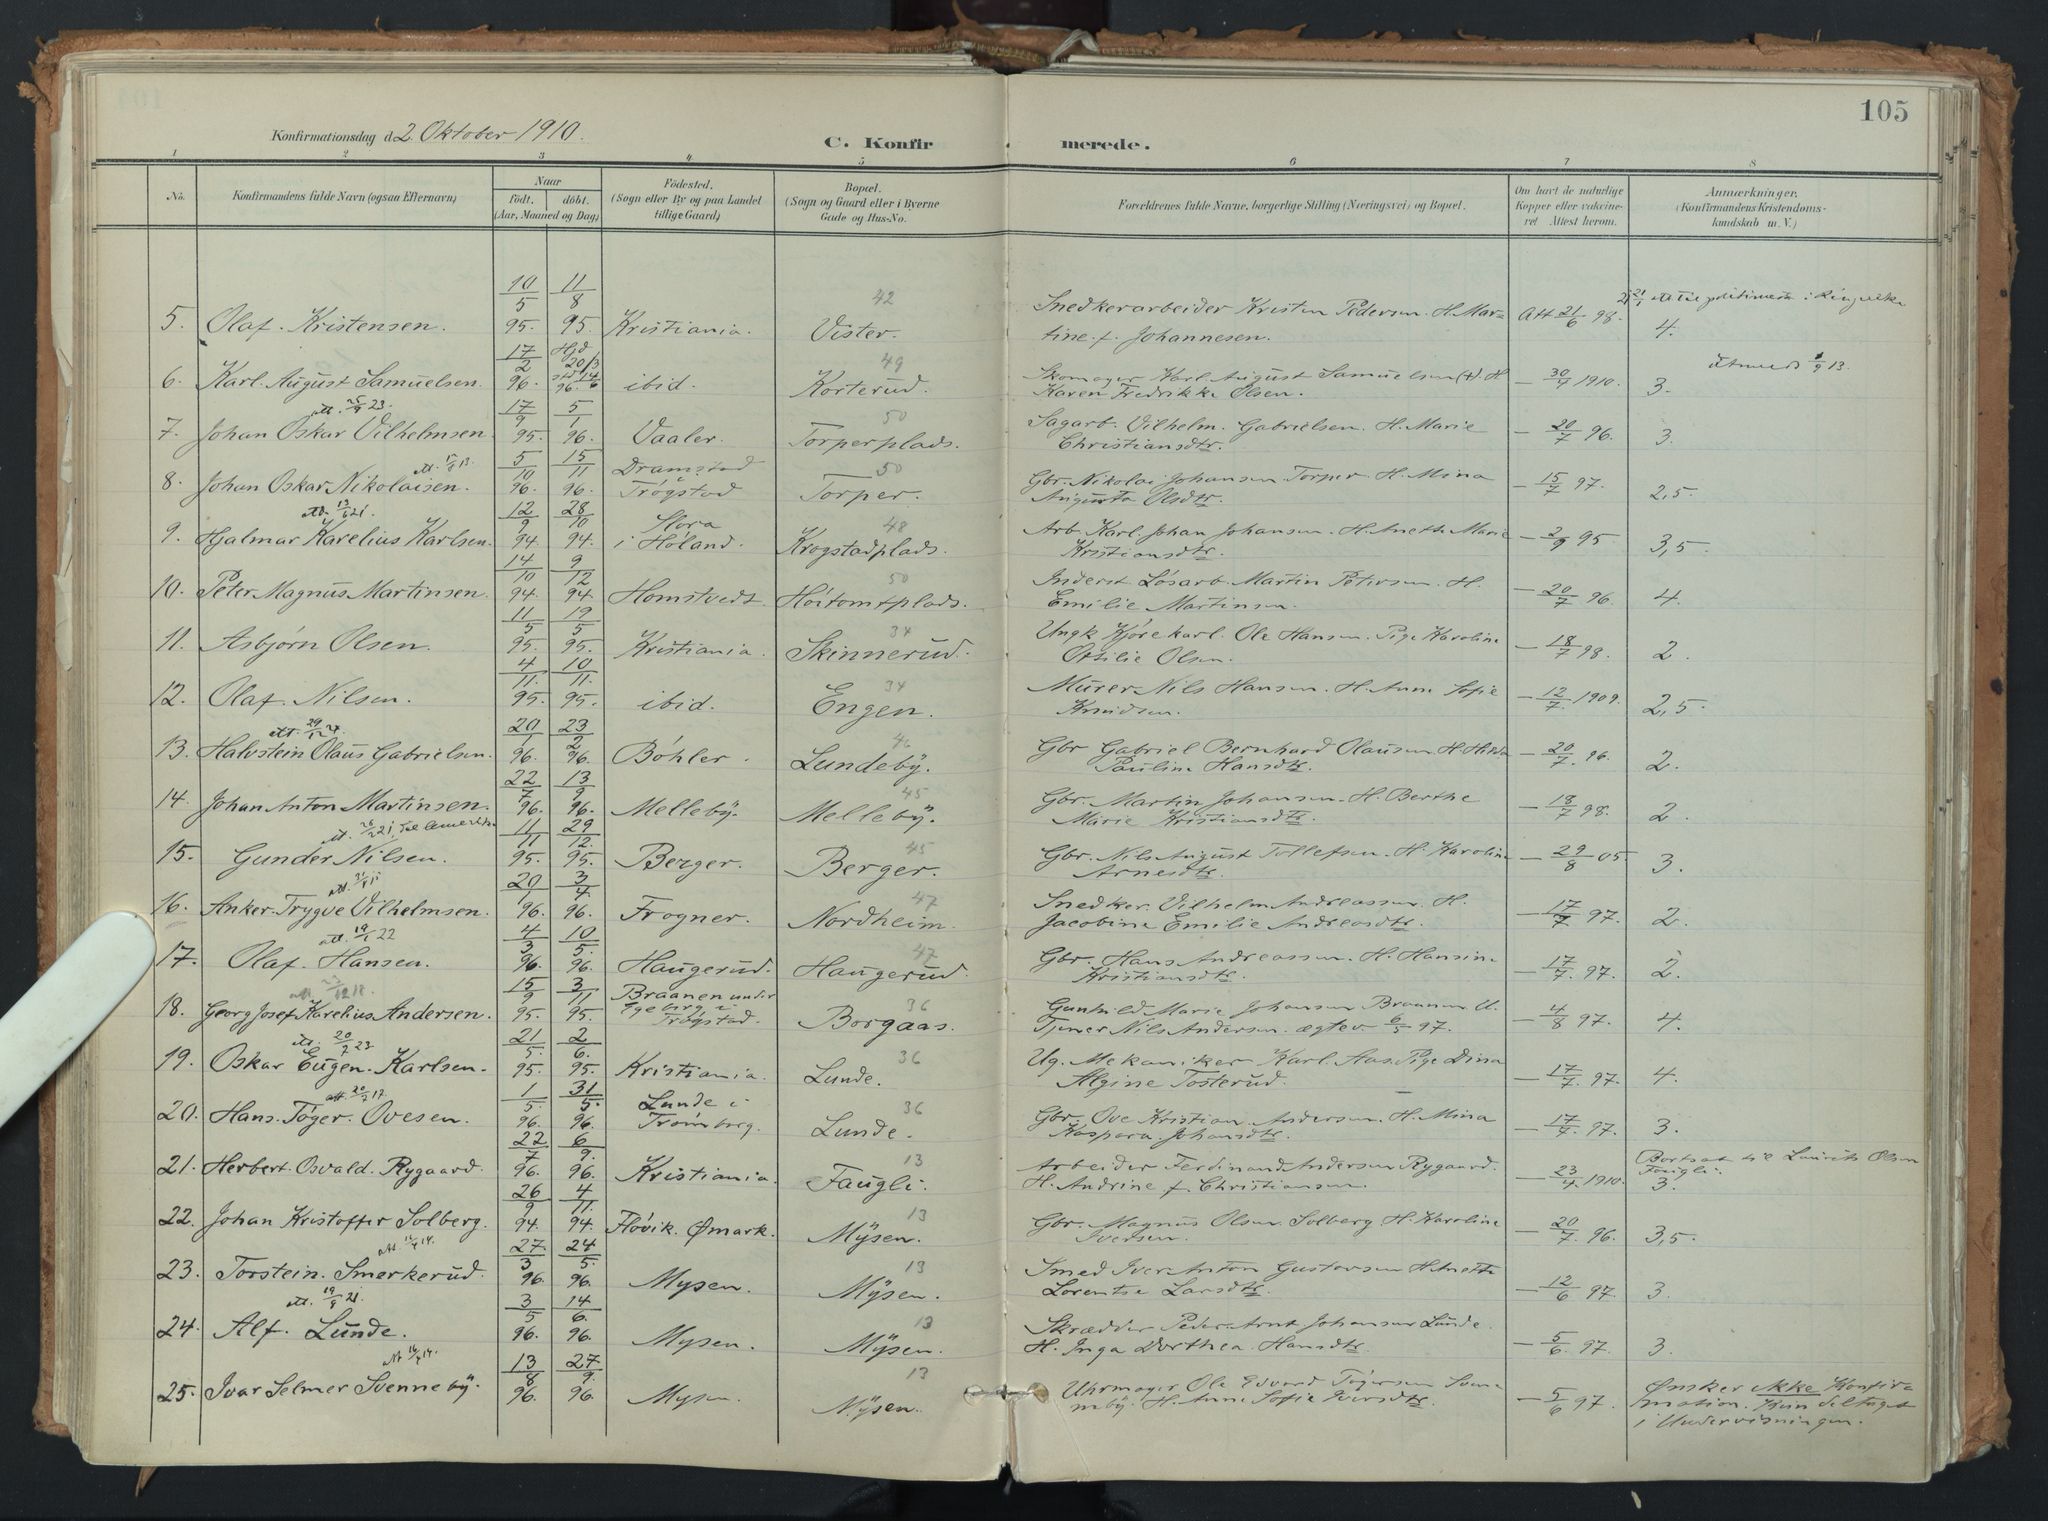 105
Konfirmationsdag d. 2 Oktober 1910.
C. Konfirmerede.
1 2 3 4 5 6 7 8
No. Konfirmandens fulde Navn (ogsaa Efternavn) Naar født. døbt. (Aar, Maaned og Dag) Fødested. (Sogn eller By og paa Landet tillige Gaard) Bopæl. (Sogn og Gaard eller i Byerne Gade og Hus-No. Forældrenes fulde Navne, borgerlige Stilling (Næringsvei) og Bopæl. Om havt de naturlige Kopper eller vakcineret Attest herom. Anmærkninger. (Konfirmandens Kristendomskundskab m. V.)
5. Olaf Kristensen. 10/5 95. 11/8 95. Kristiania. 42 Vister. Snedkerarbeider Kristen Pedersen. H. Martine f. Johannesen. Att 21/6 98. 4.
6. Karl August Samuelsen. 17/2 96. Hjd 20/3 std 14/6 96. ibid. 49 Korterud. Skomager Karl August Samuelsen (+). H. Karen Fredrikke Olsen. — 30/7 1910. 3.
att. 25/9 23.
7. Johan Oskar Vilhelmsen. 17/9 95. 5/1 96. Vaaler. 50 Torperplads. Sagarb. Vilhelm Gabrielsen. H. Marie Christiansdtr. — 20/7 96. 3.
8. Johan Oskar Nikolaisen. 5/10 96. 15/11 96. Dramstad Trøgstad 50 Torper. Gbr. Nikolai Johansen Torper. H. Mina Augusta Olsdtr. — 15/7 97. 2,5.
att. 13/6 21.
9. Hjalmar Karelius Karlsen. 12/9 94. 28/10 94. Slora i Høland. 48 Krogstadplads. Arb. Karl Johan Johansen. H. Anette Marie Kristiansdtr. — 2/9 95. 3,5.
10. Peter Magnus Martinsen. 14/10 94. 9/12 94. Homstvedt. 50 Høitomtplads. Inderst Løsarb. Martin Petersen. H. Emilie Martinsen. — 20/7 96. 4.
11. Asbjørn Olsen. 11/5 95. 19/5 95. Kristiania. 34 Skinnerud. Ungk. Kjørekarl Ole Hansen. Pige Karoline Otilie Olsen. — 18/7 98. 2.
12. Olaf Nilsen. 4/11. 95. 10/11. 95. ibid. 34 Engen. Murer Nils Hansen. H. Anne Sofie Knudsen. — 12/7. 1909. 2,5.
13. Halvstein Olaus Gabrielsen. 20/1 96. 23/2 96. Bøhler. 46 Lundeby. Gbr Gabriel Bernhard Olausen. H. Hilda Pauline Hansdtr. — 20/7. 96. 2.
14. Johan Anton Martinsen. 22/7 96. 13/9 96. Melleby. 45 Melleby. Gbr. Martin Johansen. H. Berthe Marie Kristiansdtr. — 18/7 98. 2.
att. 26/2 21, til Amerika
15. Gunder Nilsen. 11/11 95. 29/12. 95. Berger. 45 Berger. Gbr. Nils August Tollefsen. H. Karoline Arnesdtr. — 29/8 05. 3.
16. Anker Trygve Vilhelmsen. 20/1 96. 3/4. 96. Frogner. 47 Nordheim. Snedker Vilhelm Andreassen. H. Jacobine Emilie Andreasdtr. — 17/7 97. 2.
att. 19/1 22
17. Olaf Hansen. 4/3 96. 10/5. 96. Haugerud. 47 Haugerud. Gbr. Hans Andreassen. H. Hansine Kristiansdtr. — 17/7. 97. 2.
18. Georg Josef Karelius Andersen. 15/9 95. 3/11 95. Braanen under Egeberg i Trøgstad. 36 Borgaas. Gunhild Marie Johansen Braanen U. Tjener Nils Andersen. ægtev 6/5 97. — 4/8 97. 4.
att. 20/7 23
19. Oskar Eugen Karlsen. 21/5. 95. 2/6. 95. Kristiania. 36 Lunde. Ug. Mekaniker Karl Aas. Pige Dina Algine Tosterud. — 17/7. 97. 4.
att. 20/7 17.
20. Hans Tøger Ovesen. 1/5. 96. 31/5. 96. Lunde i Trømborg. 36 Lunde. Gbr. Ove Kristian Andersen. H. Mina Kaspara Johansdtr. — 17/7. 97. 3.
21. Herbert Osvald Rygaard. 22/7 96. 6/9. 96. Kristiania. 13 Faugli. Arbeider Ferdinand Andersen Rygaard. H. Andrine f. Christiansen. — 23/4. 1910. Bortsat til Laurits Olsen Faugli. 3.
22. Johan Kristoffer Solberg. 26/9 94. 4/11. 94. Fløvik. Ømark. 13 Mysen. Gbr. Magnus Olsen Solberg. H. Karoline Iversen. — 20/7. 96. 3,5.
23. Torstein Smerkerud. 27/3 96. 24/5. 96. Mysen. 13 Mysen. Smed Iver Anton Gustavsen H. Anette Lorentse Larsdtr. — 12/6 97. 3.
att. 19/9 21.
24. Alf Lunde. 3/5 96. 14/6. 96. Mysen. 13 Mysen. Skrædder Peder Arnt Johansen Lunde. H. Inga Dorthea Hansdtr. — 5/6. 97. 3.
att 16/4 14.
25. Ivar Selmer Svenneby. 13/8 96. 27/9. 96. Mysen. 13 Mysen. Uhrmager Ole Edvard Tøgersen Svenneby. H. Anne Sofie Iversdtr. — 5/6 97. Ønsker ikke Konfirmation. Kun deltaget i Undervisningen.